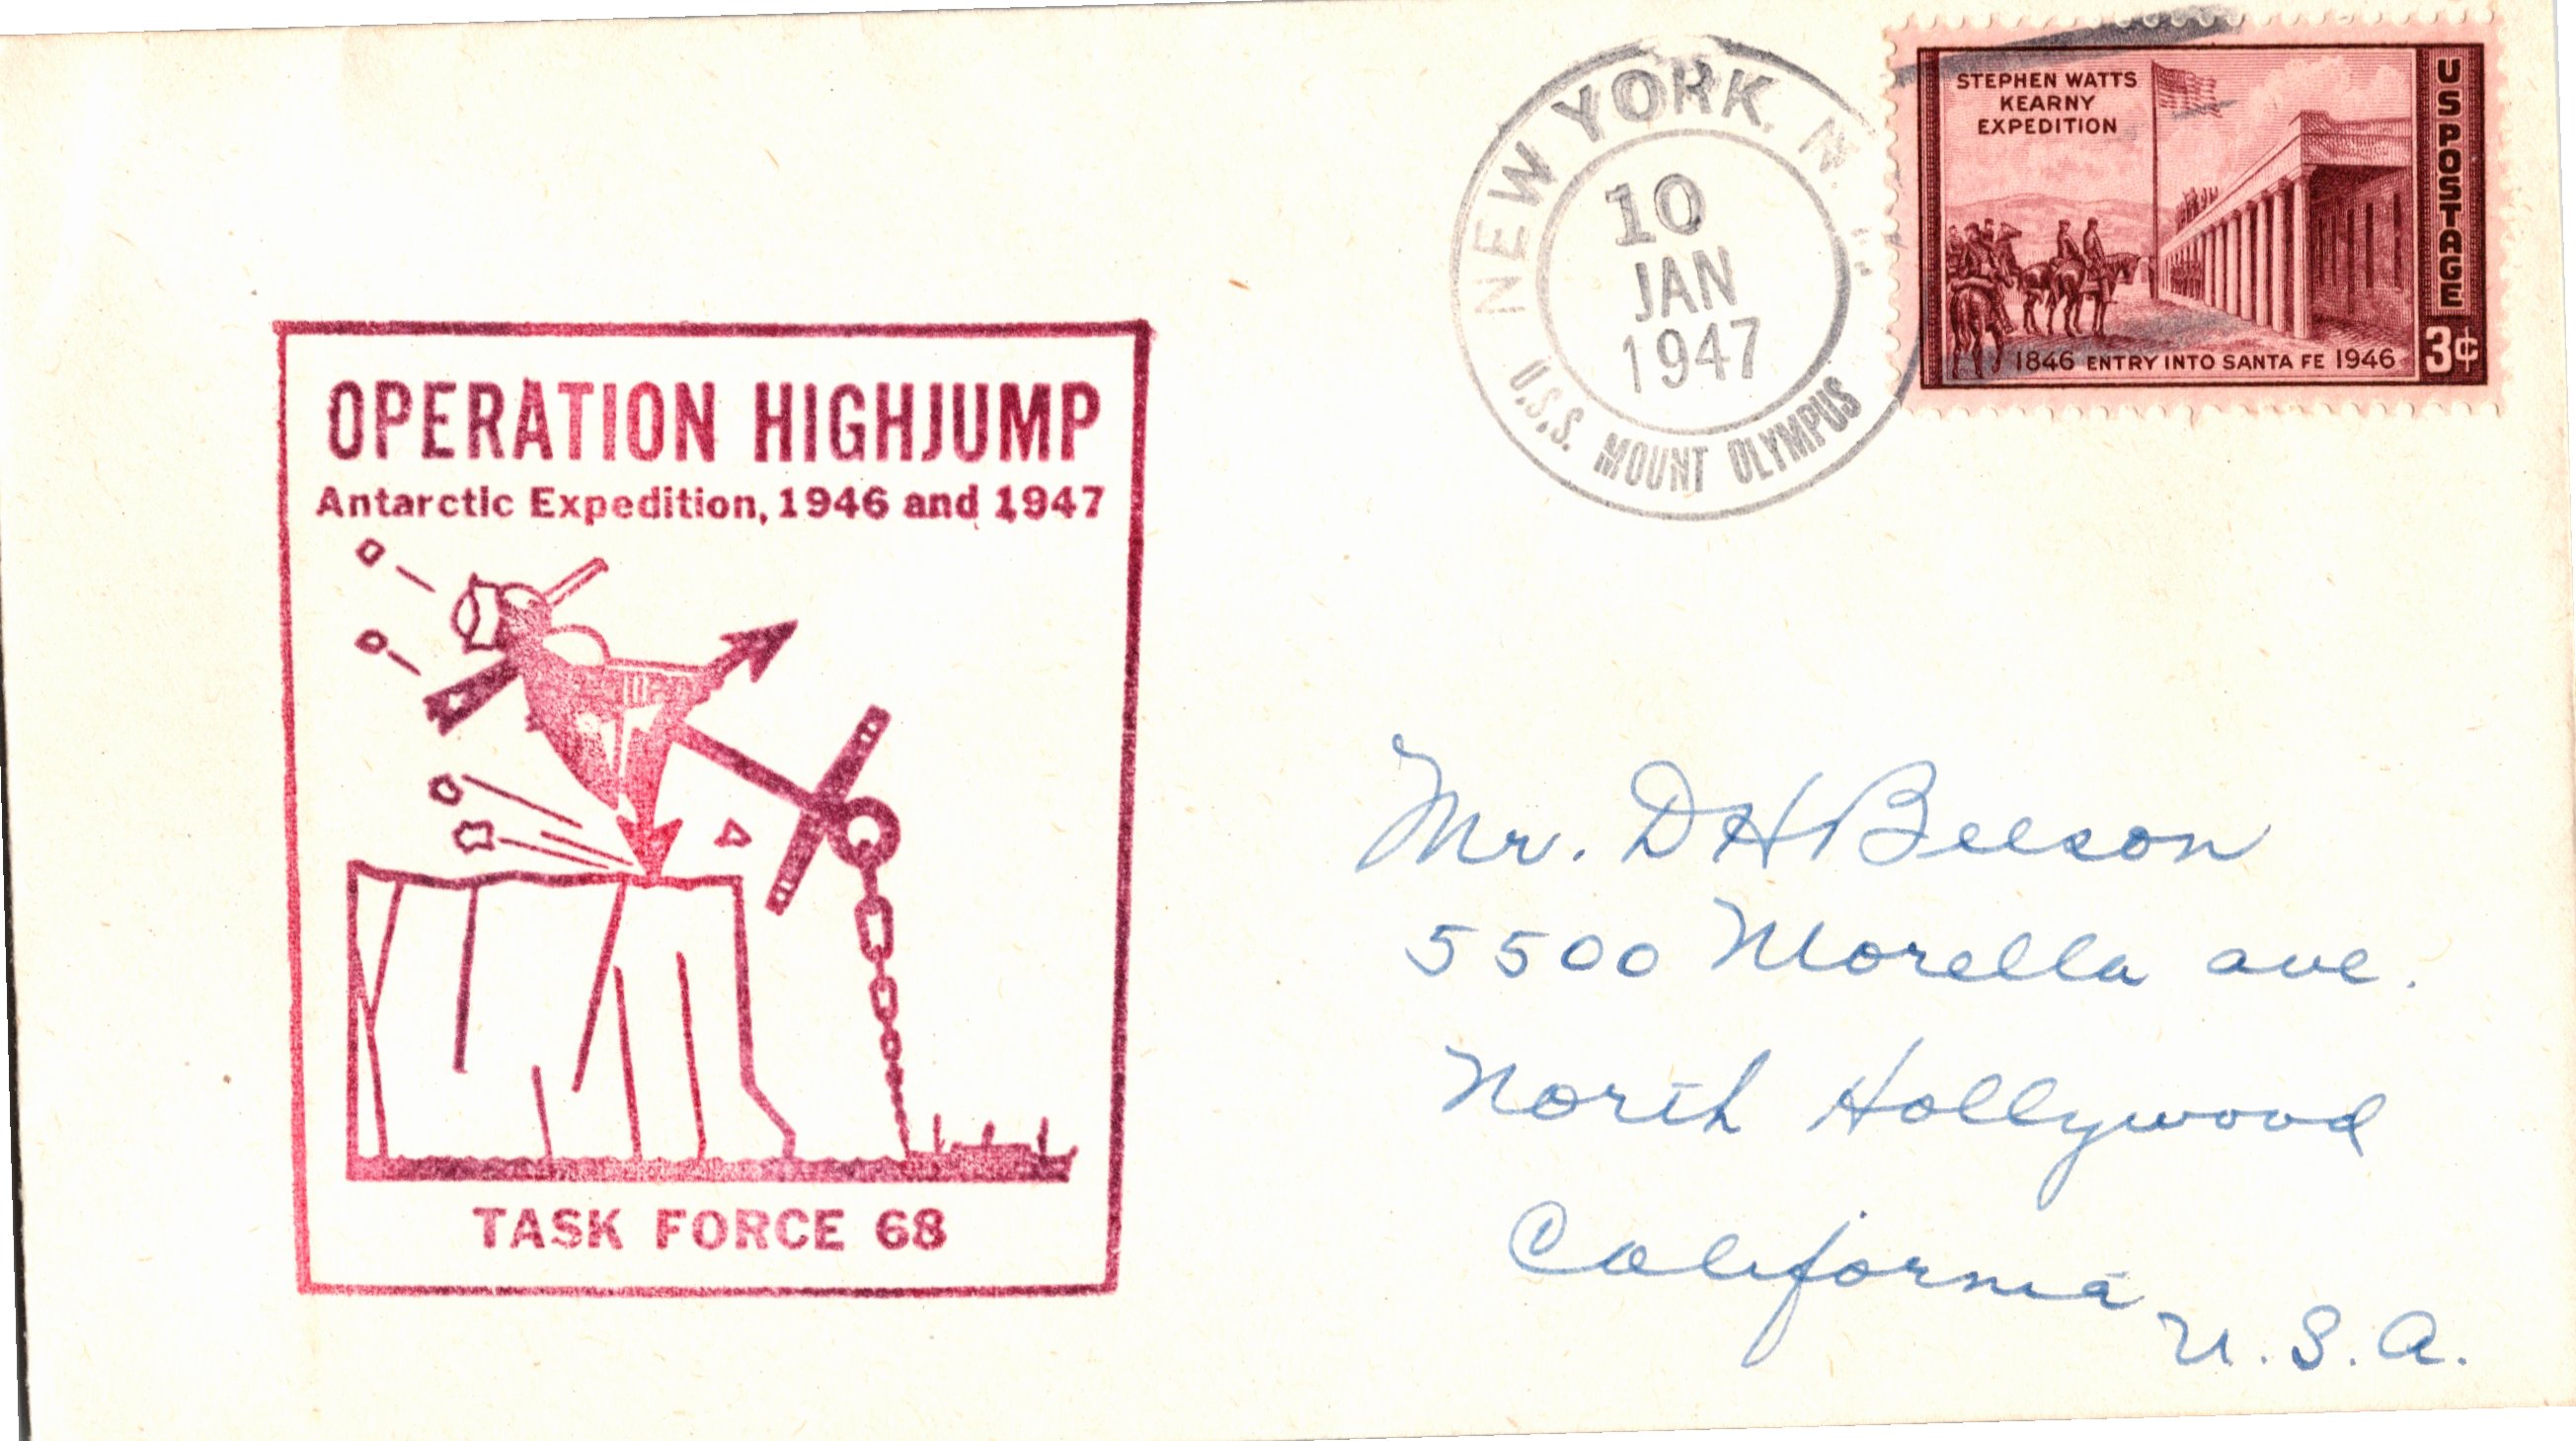 OPERATION HIGHJUMP
Antarctic Expedition, 1946 and 1947
TASK FORCE 68
NEW YORK, N.
10
JAN
1947
U.S.S. MOUNT OLYMPUS
STEPHEN WATTS
KEARNY
EXPEDITION
US POSTAGE
1846 ENTRY INTO SANTA FE 1946
3¢
Mr. D H Beeson
5500 Morella ave.
North Hollywood
California
U.S.A.